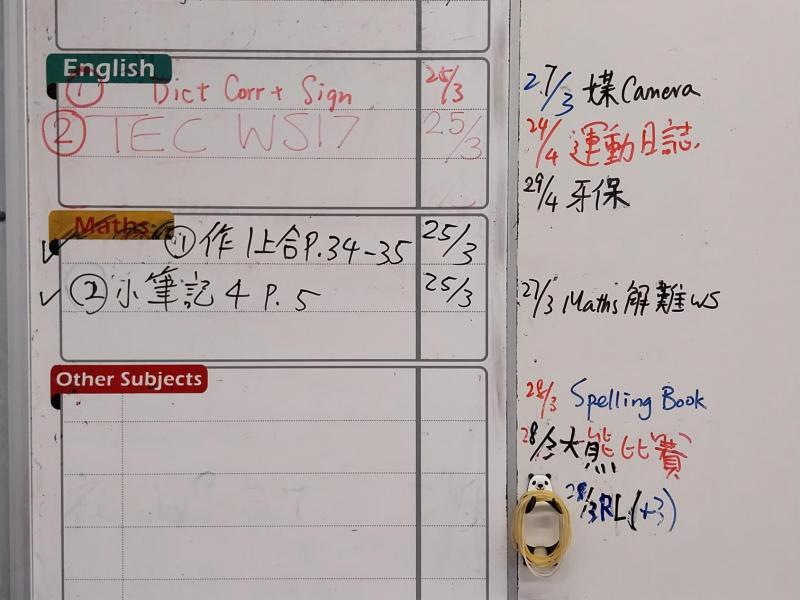 English
① Dict Corr + Sign 25/3
② TEC WS17 25/3
Maths
① 作 1上合P.34-35 25/3
② 小筆記 4 P.5 25/3
Other Subjects
27/3 媒Camera
24/4 運動日誌
29/4 牙保
27/3 Maths解難WS
28/3 Spelling Book
28/3 大熊比賽
28/3 RL(+3)